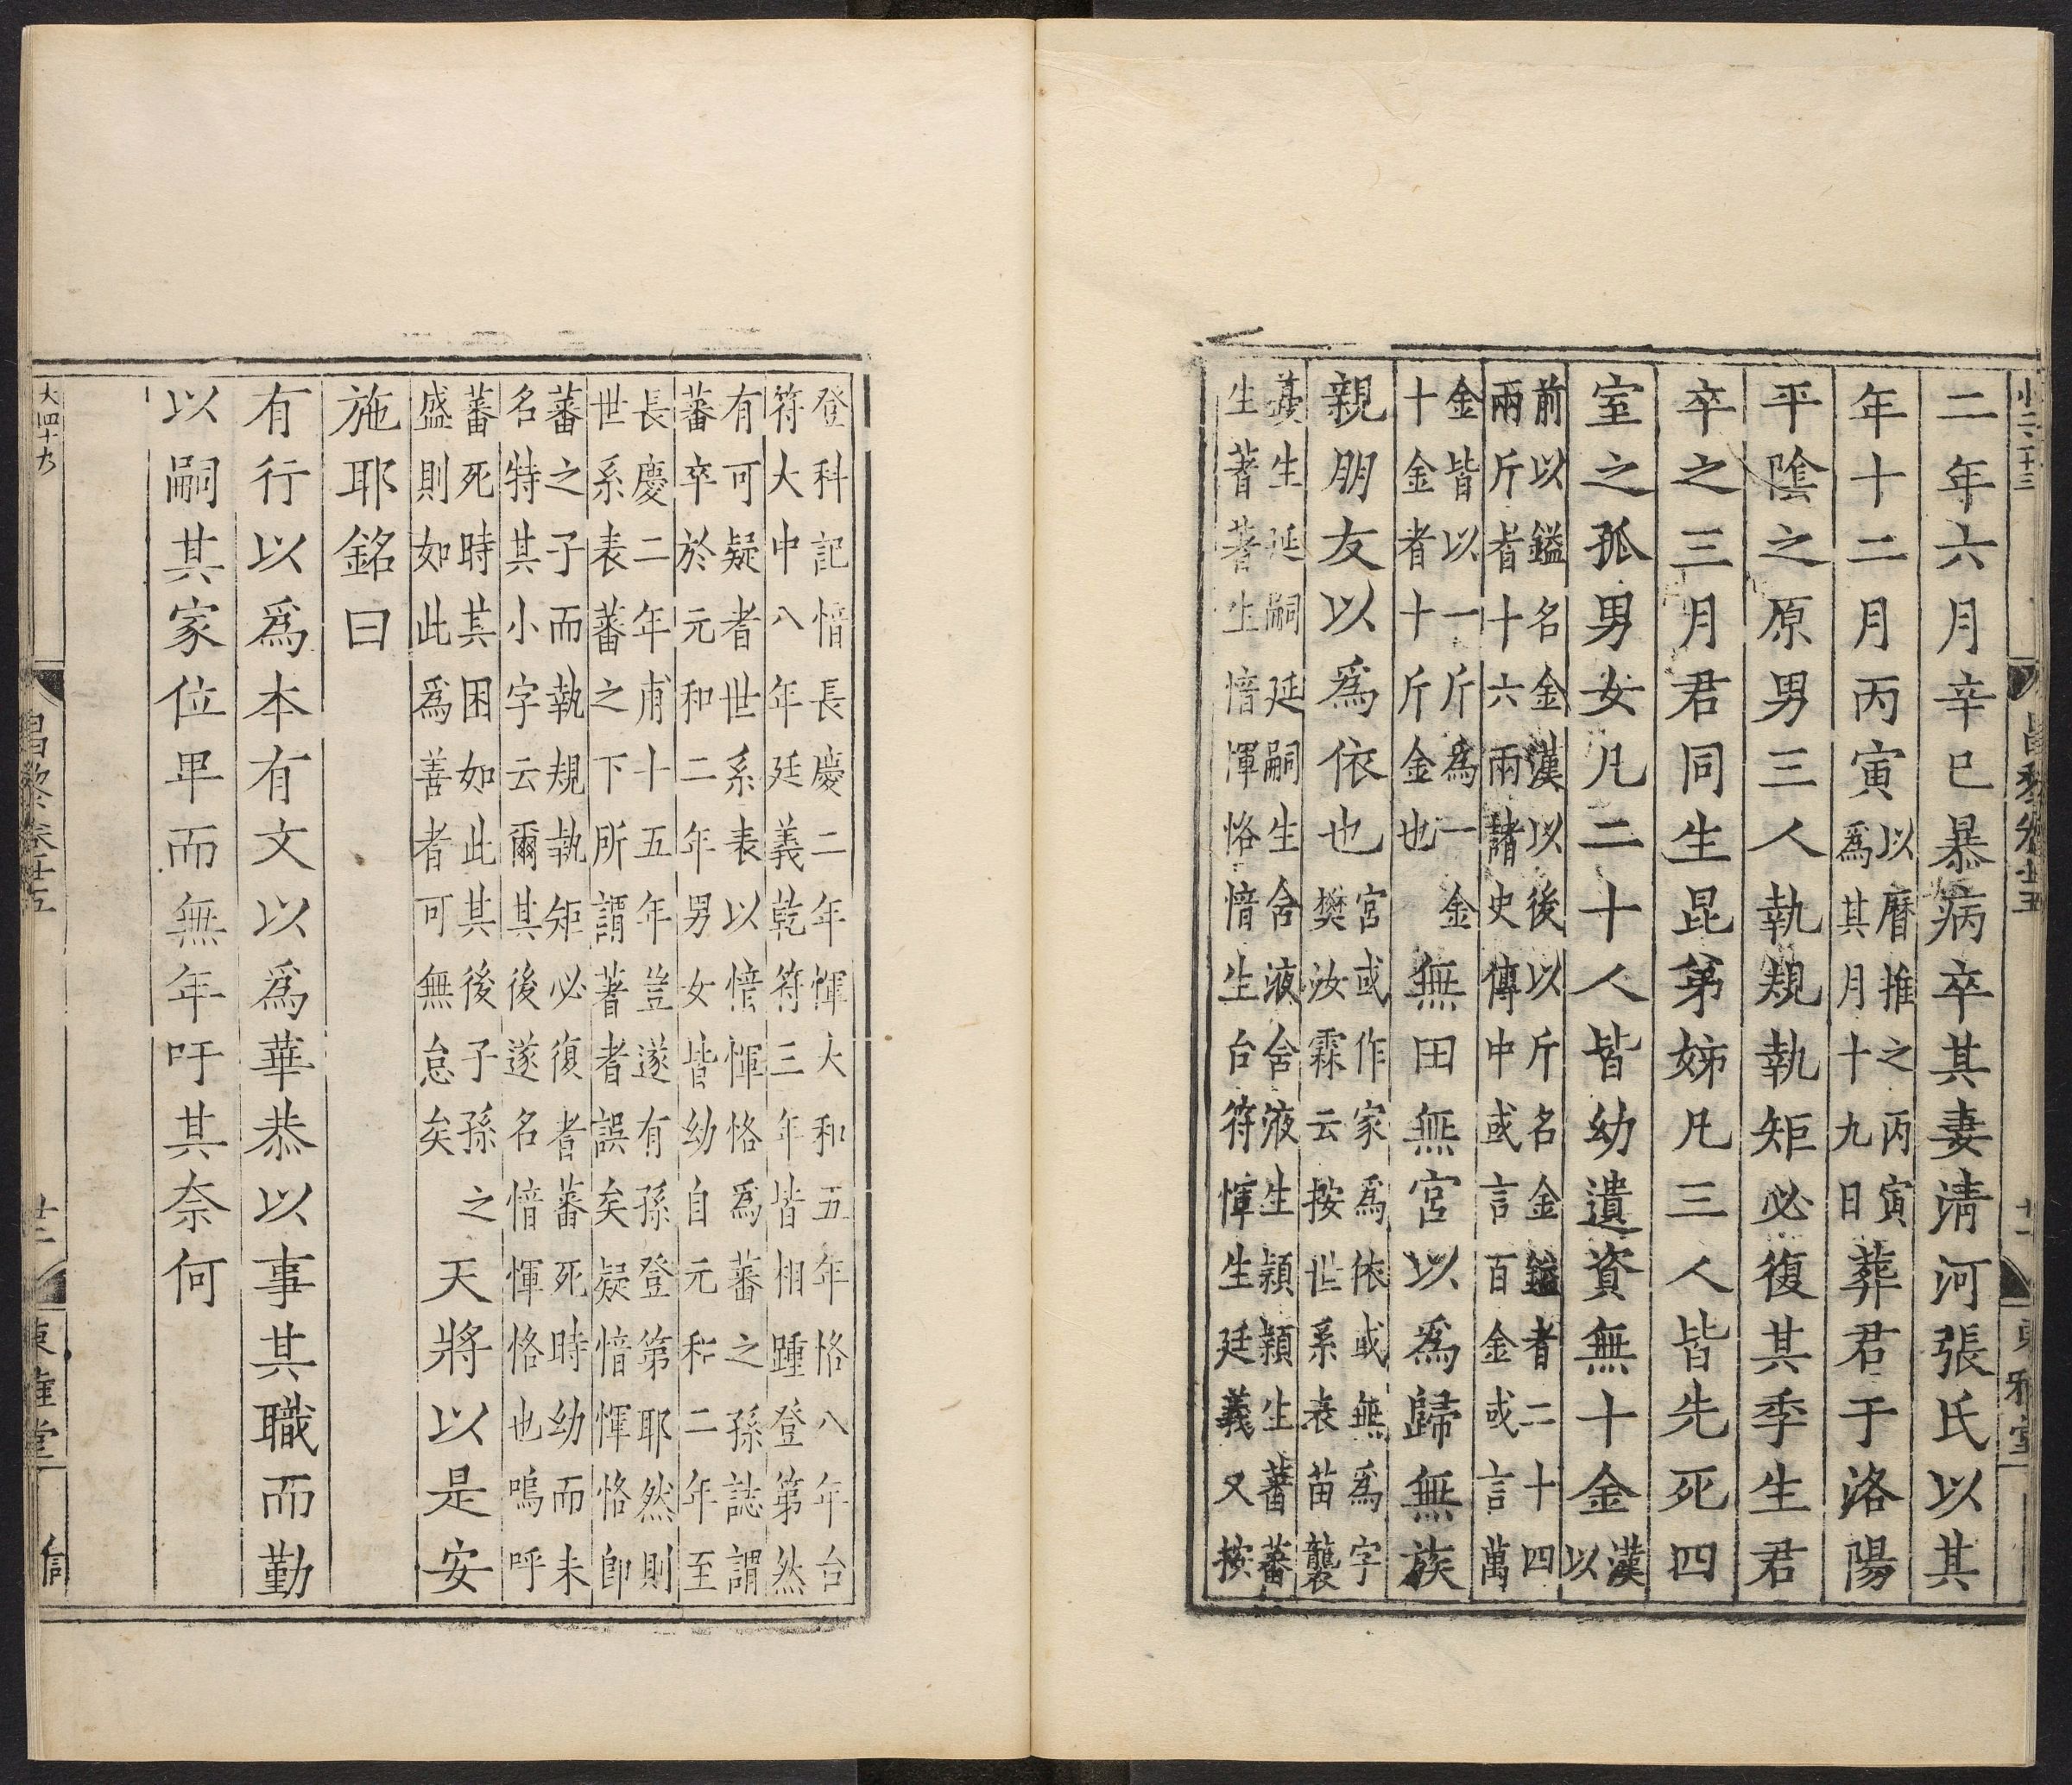 小二百二十三
昌黎卷廿五
廿一
東雅堂
二年六月辛巳暴病卒其妻淸河張氏以其
年十二月丙寅以曆推之丙寅爲其月十九日葬君于洛陽
平陰之原男三人執規執矩必復其季生君
卒之三月君同生昆弟姊凡三人皆先死四
室之孤男女凡二十人皆幼遺資無十金漢以
前以鎰名金漢以後以斤名金鎰者二十四
兩斤者十六兩諸史傳中或言百金或言萬
金皆以一斤爲一金
十金者十斤金也無田無宮以爲歸無族
親朋友以爲依也宮或作家爲依或無爲字樊汝霖云按世系表苗襲
蘷生延嗣延嗣生舍液舍液生穎穎生蕃蕃
生著著生愔惲恪愔生台符惲生廷義又按
登科記愔長慶二年惲大和五年恪八年台
符大中八年廷義乾符三年皆相踵登第然
有可疑者世系表以愔惲恪爲蕃之孫誌謂
蕃卒於元和二年男女皆幼自元和二年至
長慶二年甫十五年豈遂有孫登第耶然則
世系表蕃之下所謂著者誤矣疑愔惲恪卽
蕃之子而執規執矩必復者蕃死時幼而未
名特其小字云爾其後遂名愔惲恪也嗚呼
蕃死時其困如此其後子孫之
盛則如此爲善者可無怠矣天將以是安
施耶銘曰
有行以爲本有文以爲華恭以事其職而勤
以嗣其家位卑而無年吁其奈何
大四十九
昌黎卷廿五
廿二
東雅堂
信